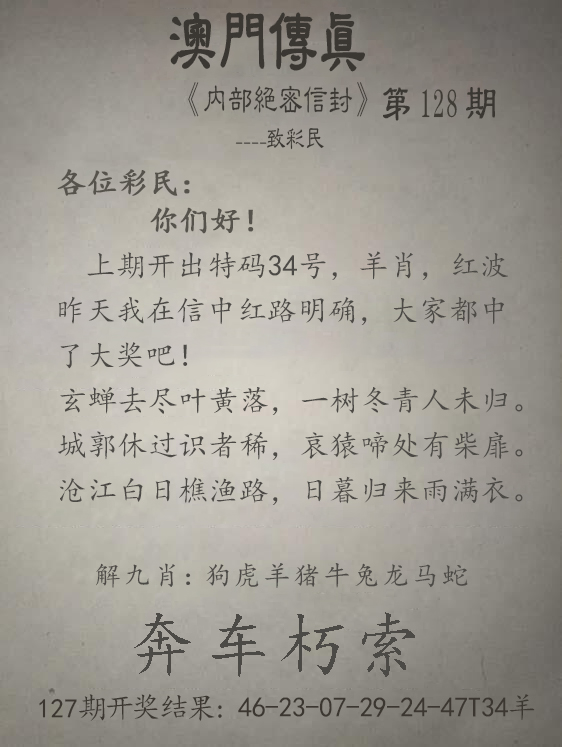 澳門傳真
《内部絕密信封》第128期
----致彩民
各位彩民：
你们好！
上期开出特码34号，羊肖，红波
昨天我在信中红路明确，大家都中
了大奖吧！
玄蝉去尽叶黄落，一树冬青人未归。
城郭休过识者稀，哀猿啼处有柴扉。
沧江白日樵渔路，日暮归来雨满衣。
解九肖：狗虎羊猪牛兔龙马蛇
奔车朽索
127期开奖结果：46-23-07-29-24-47T34羊